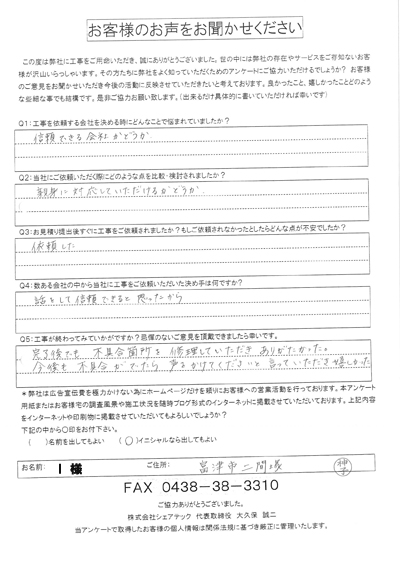 お客様のお声をお聞かせください
この度は弊社に工事をご用命いただき、誠にありがとうございました。世の中には弊社の存在やサービスをご存知ないお客
様が沢山いらっしゃいます。その方たちに弊社をよく知っていただくためのアンケートにご協力いただけるでしょうか？ お客様
のご意見をお聞かせいただき今後の活動に反映させていただきたいと考えております。良かったこと、嬉しかったことどのよう
な些細な事でも結構です。是非ご協力お願い致します。（出来るだけ具体的に書いていただければ幸いです）
Q1：工事を依頼する会社を決める時にどんなことで悩まれていましたか？
信頼できる会社かどうか
Q2：当社にご依頼いただく際にどのような点を比較・検討されましたか？
親身に対応していただけるかどうか
Q3：お見積り提出後すぐに工事をご依頼されましたか？もしご依頼されなかったとしたらどんな点が不安でしたか？
依頼した
Q4：数ある会社の中から当社に工事をご依頼いただいた決め手は何ですか？
話をして信頼できると思ったから
Q5：工事が終わってみていかがですか？忌憚のないご意見を頂戴できましたら幸いです。
完了後でも不具合箇所を修理していただきありがたかった。
今後も不具合がでたら声をかけてくださいと言っていただき嬉しかった
＊弊社は広告宣伝費を極力かけない為にホームページだけを頼りにお客様への営業活動を行っております。本アンケート
用紙またはお客様宅の調査風景や施工状況を随時ブログ形式のインターネットに掲載させていただいております。上記内容
をインターネットや印刷物に掲載させていただいてもよろしいでしょうか？
下記の中から○印をお付下さい。
（ ）名前を出してもよい （○）イニシャルなら出してもよい
お名前： I 様 ご住所： 富津市二間塚
FAX 0438-38-3310
ご協力ありがとうございました。
株式会社シェアテック 代表取締役 大久保 誠二
当アンケートで取得したお客様の個人情報は関係法規に基づき厳正に管理いたします。